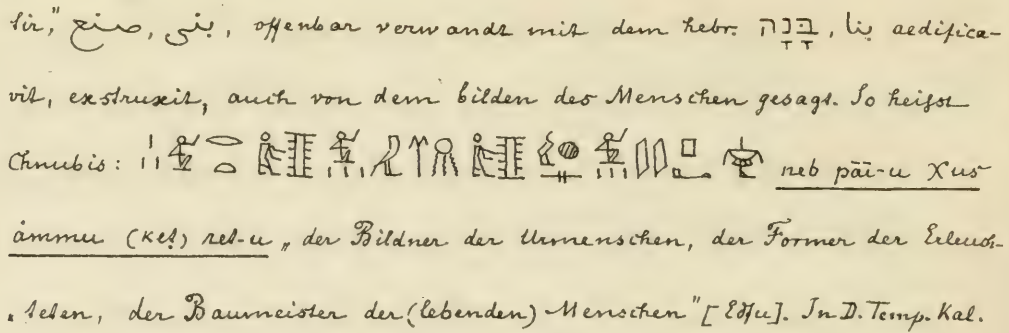 tir," صنع, بنى, offenbar verwandt mit dem hebr. בָּנָה, بنا aedifica-
vit, exstruxit, auch von dem bilden des Menschen gesagt. So heißt
Chnubis: neb pāi-u χus
ámmu (ḳeṭ) ret-u „der Bildner der Urmenschen, der Former der Erleuch-
teten, der Baumeister der (lebenden) Menschen" [Edfu]. In D. Temp. Kal.